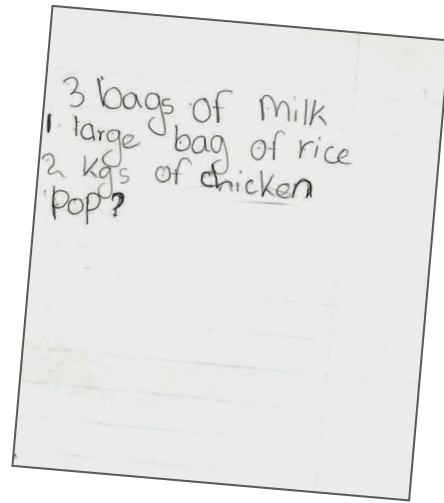 3 bags of milk
1 large bag of rice
2 kgs of chicken
pop?